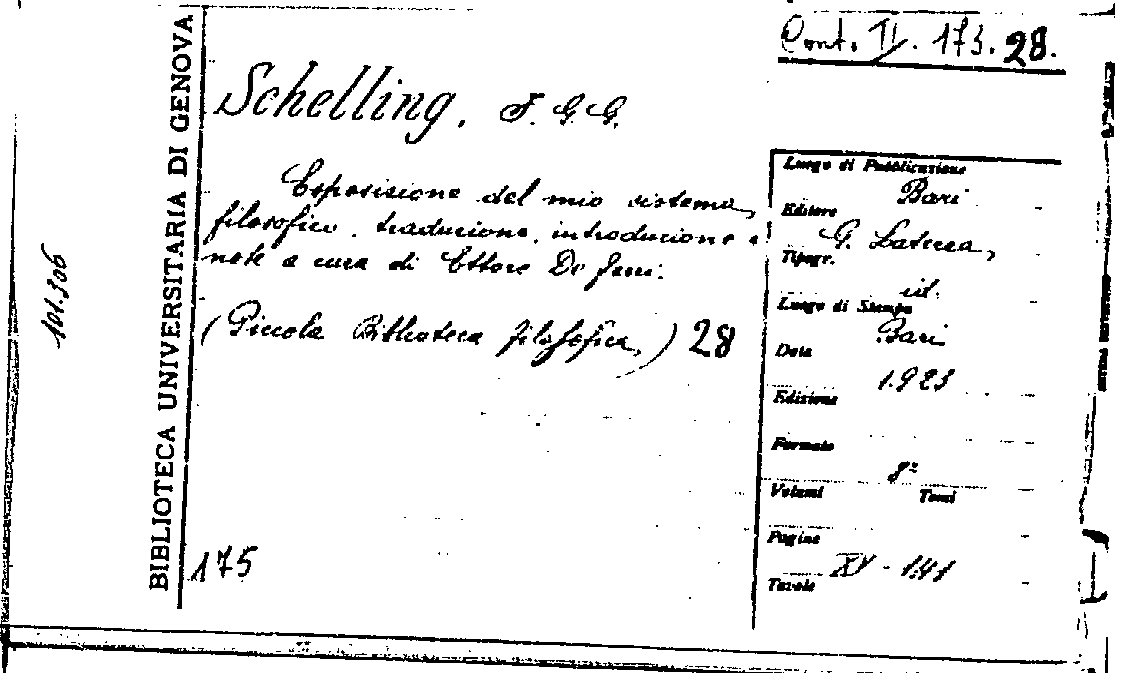 Cont. II. 173. 28.
BIBLIOTECA UNIVERSITARIA DI GENOVA
101.306
Schelling, F. G. G.
Esposizione del mio sistema
filosofico. traduzione, introduzione e
note a cura di Ettore De Ferri.
(Piccola Biblioteca filosofica,) 28
175
Luogo di Pubblicazione
Bari
Editore
G. Laterza,
Tipogr.
id.
Luogo di Stampa
Bari
Data
1923
Edizione
Formato
8º
Volumi Tomi
Pagine
XV - 141
Tavole